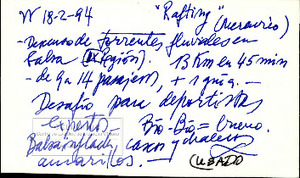 VV 18-2-94 "Rafting" (Mercurio)
- Descenso de torrentes fluviales en
balsa (IX Región). 13 Km en 45 min
- de 9 a 14 pasajeros, + 1 guía. -
Desafío para deportistas
expertos Bío-Bío = bueno.
Balsa inflada, casco y chaleco
amarillos. -
(USADO)